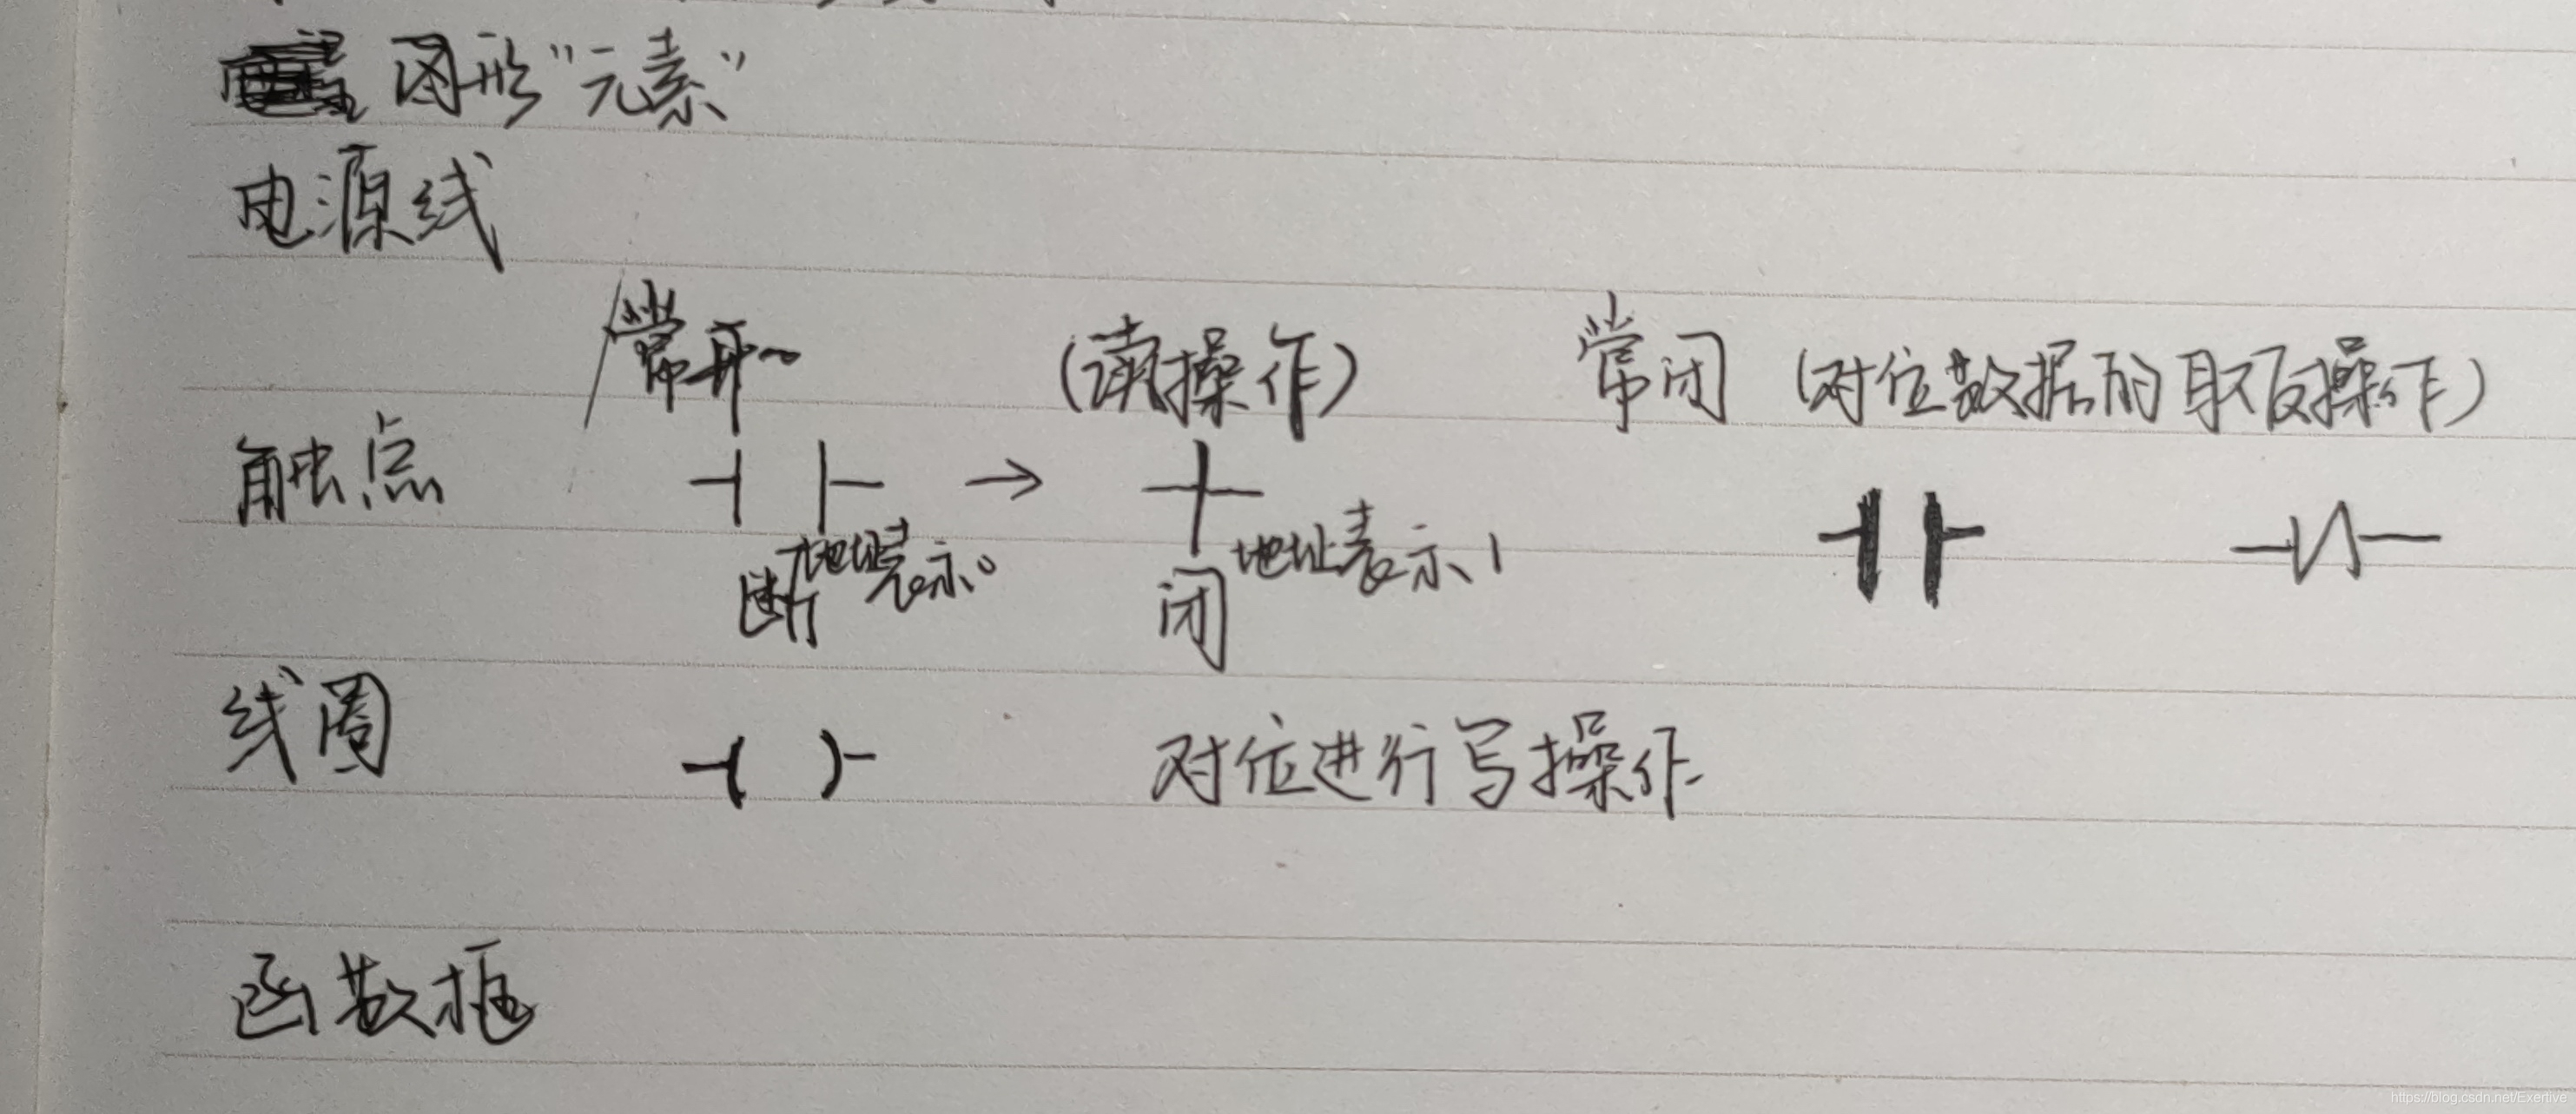 图形“元素”
电源线
常开 (读操作) 常闭 (对位数据的取反操作)
触点
断 地址表示0 闭 地址表示1
线圈 对位进行写操作
函数框
https://blog.csdn.net/Exertive